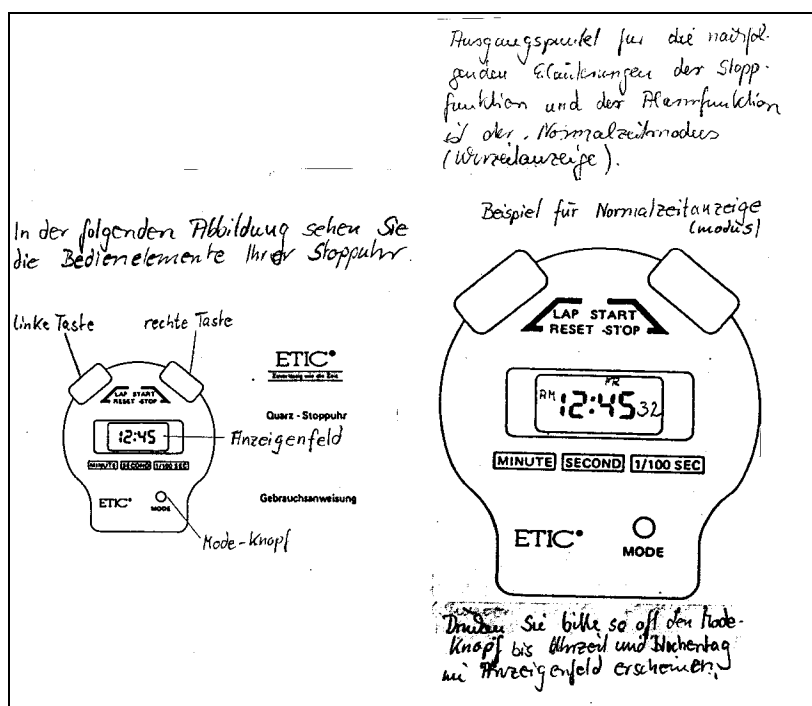 In der folgenden Abbildung sehen Sie
die Bedienelemente Ihrer Stoppuhr.
linke Taste
rechte Taste
LAP START
RESET -STOP
12:45
Anzeigenfeld
MINUTE SECOND 1/100 SEC
ETIC
MODE
Mode-Knopf
ETIC
Zuverlässig wie die Zeit
Quarz - Stoppuhr
Gebrauchsanweisung
Ausgangspunkt für die nachfol-
genden Erläuterungen der Stopp-
funktion und der Alarmfunktion
ist der Normalzeitmodus
(Uhrzeitanzeige).
Beispiel für Normalzeitanzeige
(modus)
LAP START
RESET -STOP
FR
12:45 32
MINUTE SECOND 1/100 SEC
ETIC
MODE
Drücken Sie bitte so oft den Mode-
Knopf bis Uhrzeit und Wochentag
im Anzeigenfeld erscheinen.